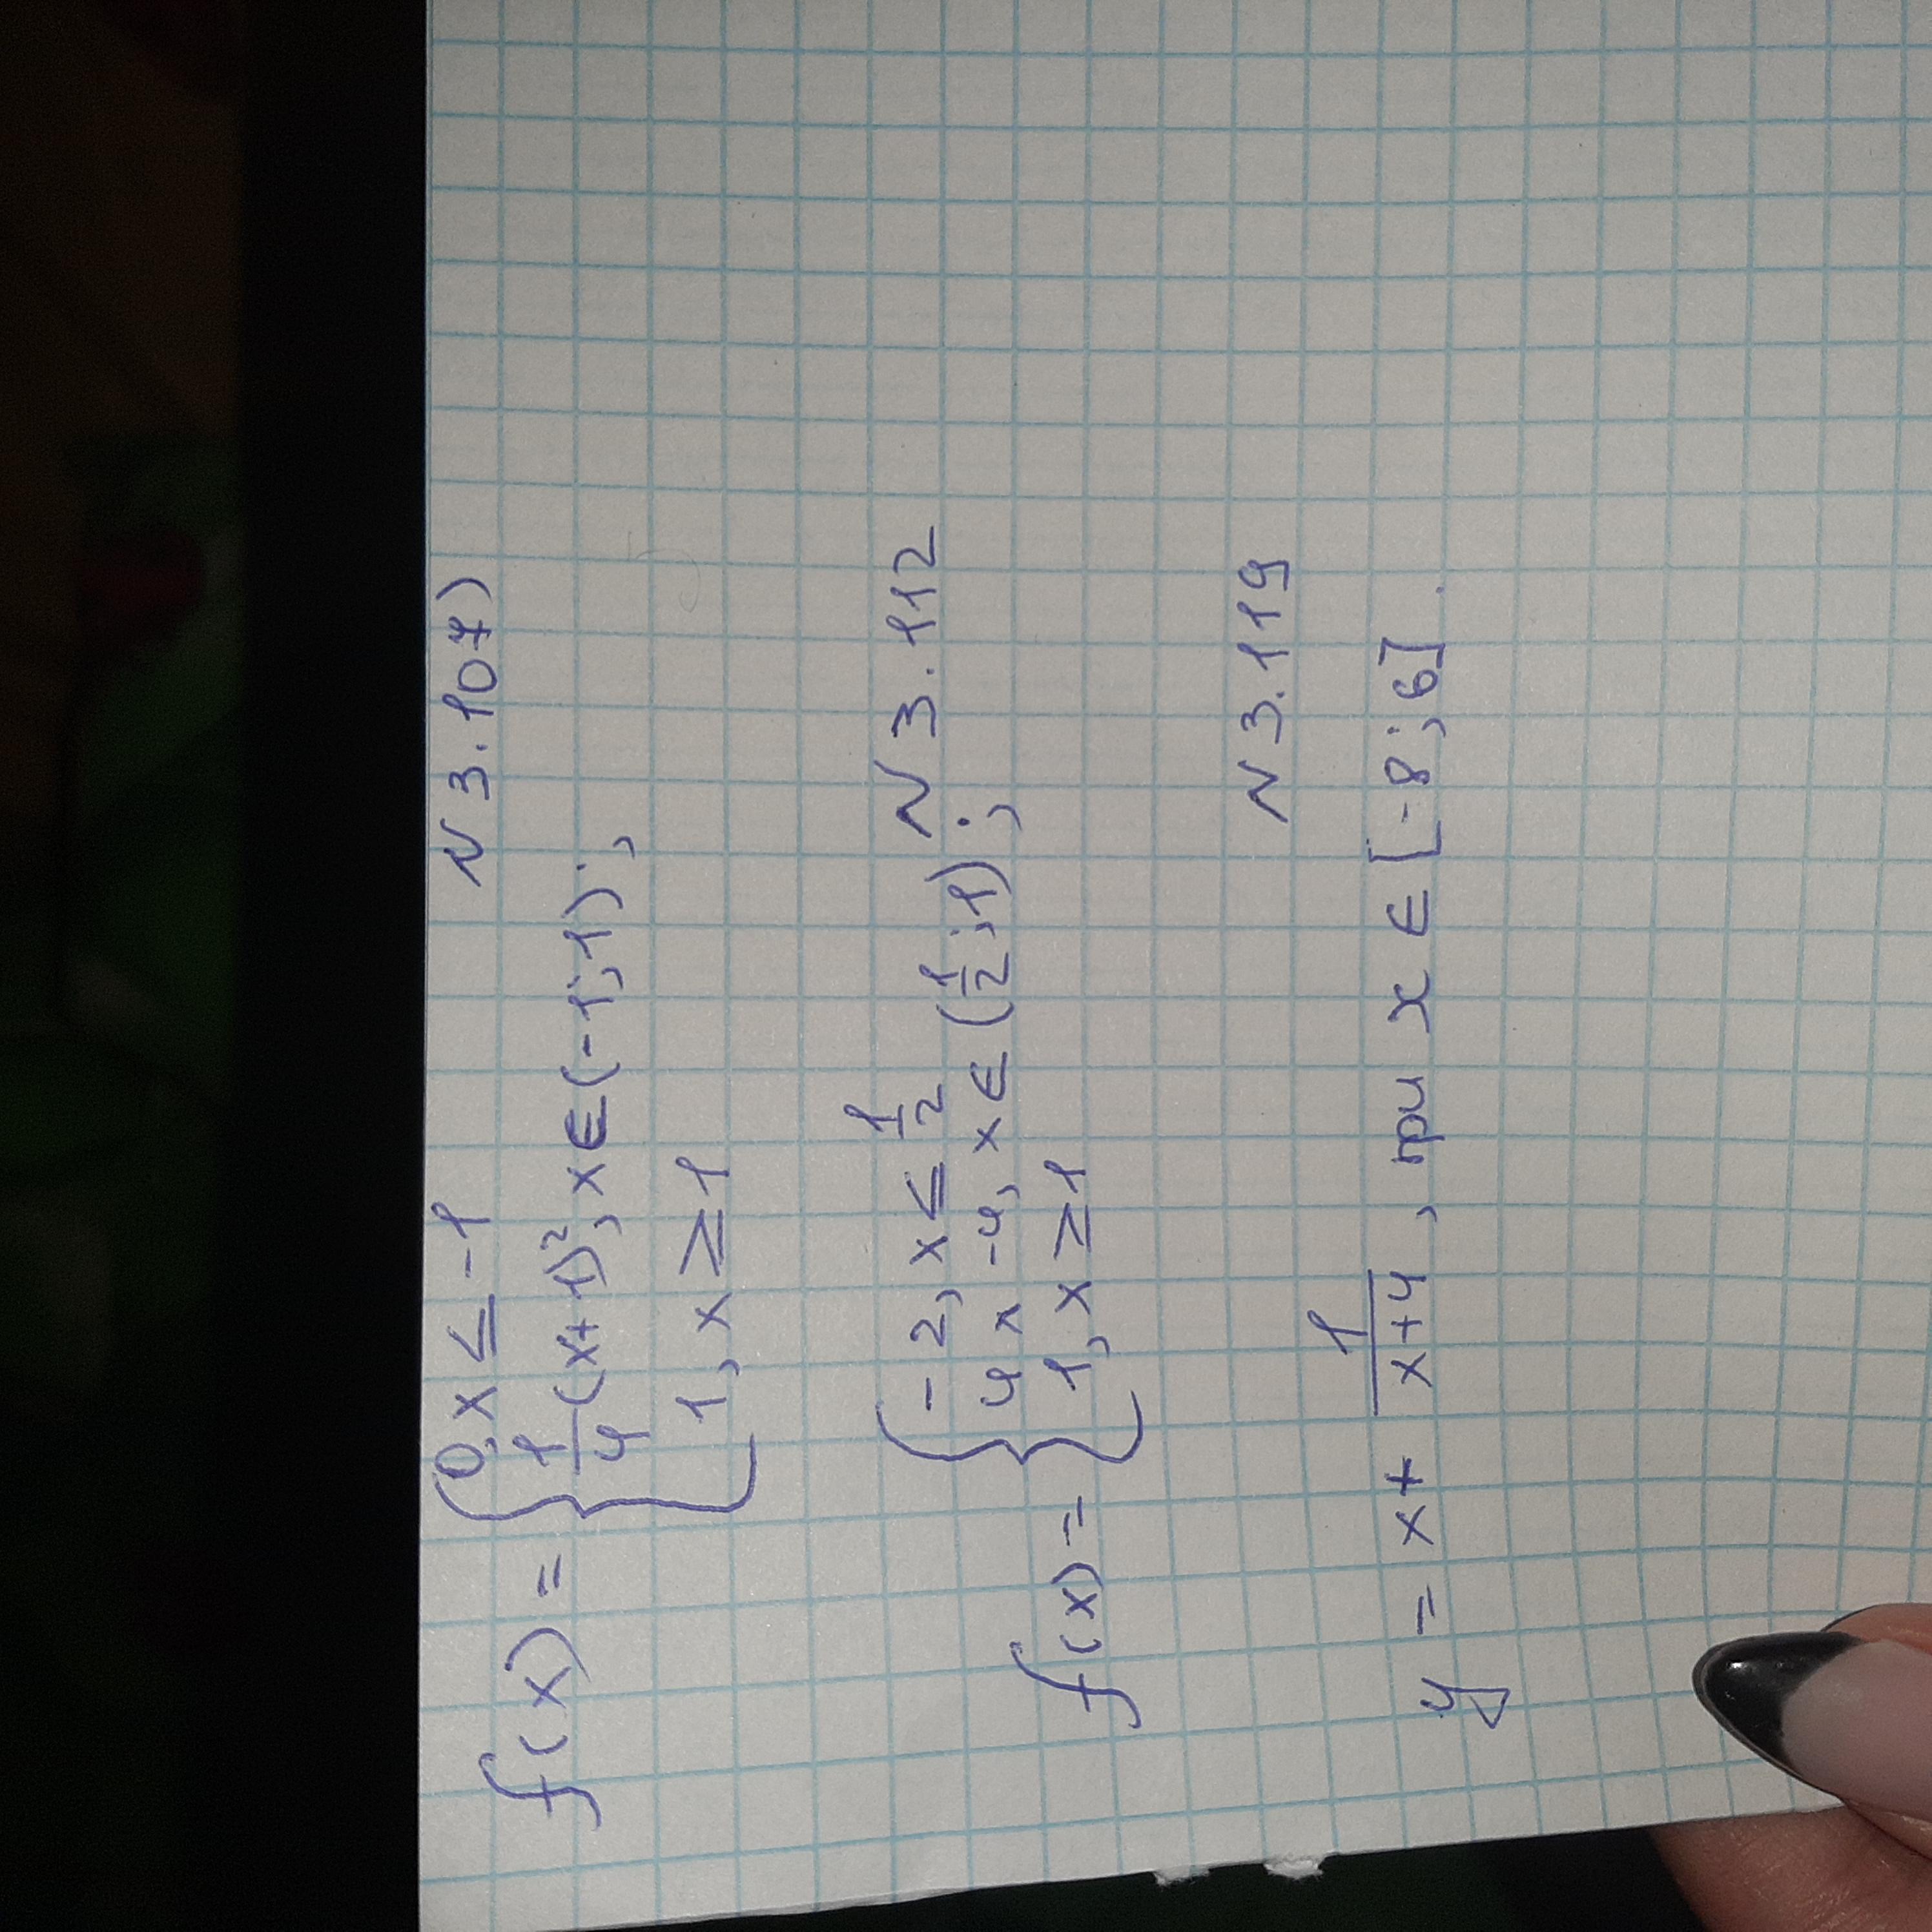 N 3.107)
f(x) = { 0, x ≤ -1
1/4 (x+1)², x ∈ (-1; 1);
1, x ≥ 1
N 3.112
f(x) = { -2, x ≤ 1/2
4x -4, x ∈ (1/2; 1);
1, x ≥ 1
N 3.119
y = x + 1/(x+4), при x ∈ [-8; 6].